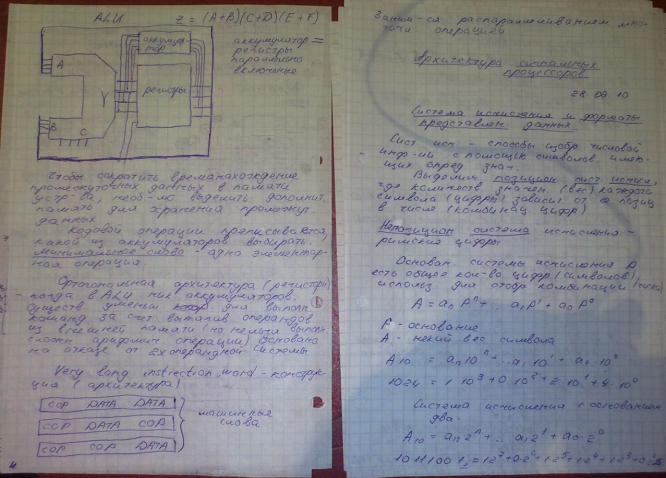 ALU Z = (A+B)(C+D)(E+F)
аккумулятор
аккумулятор =
регистры
параллельно
включенные
A
Y
регистры
B
C
Чтобы сократить время нахождение
промежуточных данных в памяти
устр-ва, необ-мо выделить дополнит.
память для хранения промежут.
данных
Кодовой операции преписывается,
какой из аккумуляторов выбирать.
минимальное слово - одна элементар-
ная операция
Ортогональная архитектура (регистры)
- когда в АЛУ ник аккумуляторов.
для выполн.
команд за счет операндов
из внешней памяти (но нельзя выполн.
сложн арифмич операции) Основано
на отказе от 2х операндной системы
Very long instrection word - конструк-
ция (архитектура)
COP DATA DATA
COP DATA COP
COP COP DATA
машинные
слова
Заним-ся распараллеливанием
операцией
Архитектура
процессоров
28 09 10
Система исчисления и форматы
представлен данных
Сист исч - способы изобр числовой
инф-ии с помощью символов, имею-
щих опред знач.
Выделим позицион сист исчисл,
где количеств значен. (вес) каждого
символа (цифры) зависит от позиц
в числе (комбинац цифр)
Непозицион система исчисления -
римские цифры
Основан. системы исчисления P
есть общее кол-во цифр (символов),
использ для отобр комбинации (числа)
A = aₙ Pⁿ + a₁ P¹ + a₀ P⁰
P - основание
A - некий вес символа
A₁₀ = aₙ 10ⁿ + ... a₁ 10¹ + a₀ 10⁰
1024 = 1 10³ + 0 10² + 2 10¹ + 4 10⁰
Система исчисления с основанием
два.
A₁₀ = aₙ 2ⁿ + ... a₁ 2¹ + a₀ 2⁰